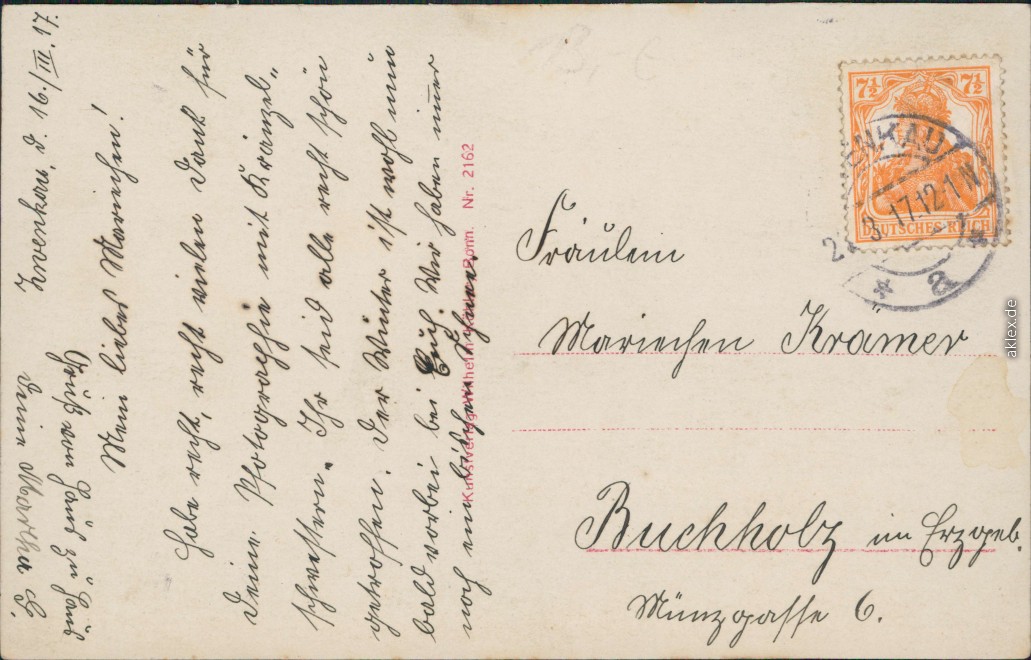 Zwenkau, d. 16./III. 17.
Mein liebes Mariechen!
Habe recht, recht vielen Dank für
Deine Photographie mit Kränzel„
schwestern. Ihr seid alle recht schön
getroffen. Der Winter ist wohl nun
bald vorbei bei Euch. Wir haben immer
noch ein bißchen Schnee.
Gruß von Haus zu Haus
Deine Martha G.
Kunstverlag Wilhelm Bonn. Nr. 2162
7½ 7½
DEUTSCHES REICH
ENKAU
3. 17. 12-1 N
* a *
Fräulein
Mariechen Krämer
Buchholz im Erzgeb.
Münzgasse 6.
aklex.de